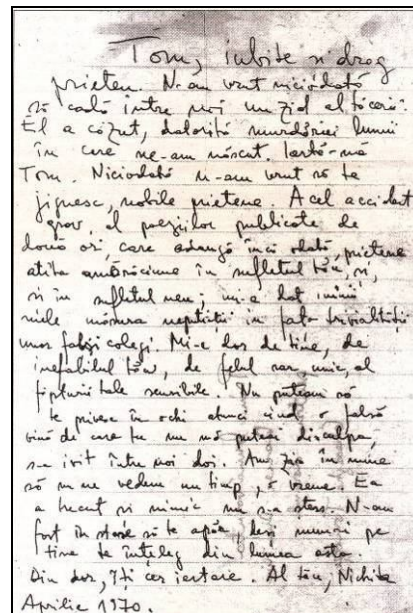 Tom, iubite și drag
prieten. N-am vrut niciodată
să cadă între noi un zid al tăcerii.
El a căzut, datorită murdăriei lumii
în care ne-am născut. Iartă-mă
Tom. Niciodată n-am vrut să te
jignesc, nobile prietene. Acel accident
grav, al poeziilor publicate de
două ori, care adaugă încă odată, prietene
atîta amărăciune în sufletul tău, și,
și în sufletul meu; mi-a dat inimii
mele măsura neputinții în fața trivialității
unor falși colegi. Mi-e dor de tine, de
inefabilul tău, de felul rar, unic, al
făpturii tale sensibile. Nu puteam să
te privesc în ochi atunci cînd o falsă
vină de care tu nu mă puteai disculpa,
s-a ivit între noi doi. Am zis în mine
să nu ne vedem un timp, o vreme. Ea
a trecut și nimic nu s-a șters. N-am
fost în stare să te apăr, deși numai pe
tine te înțeleg din lumea asta.
Din dor, îți cer iertare. Al tău, Nichita
Aprilie 1970.